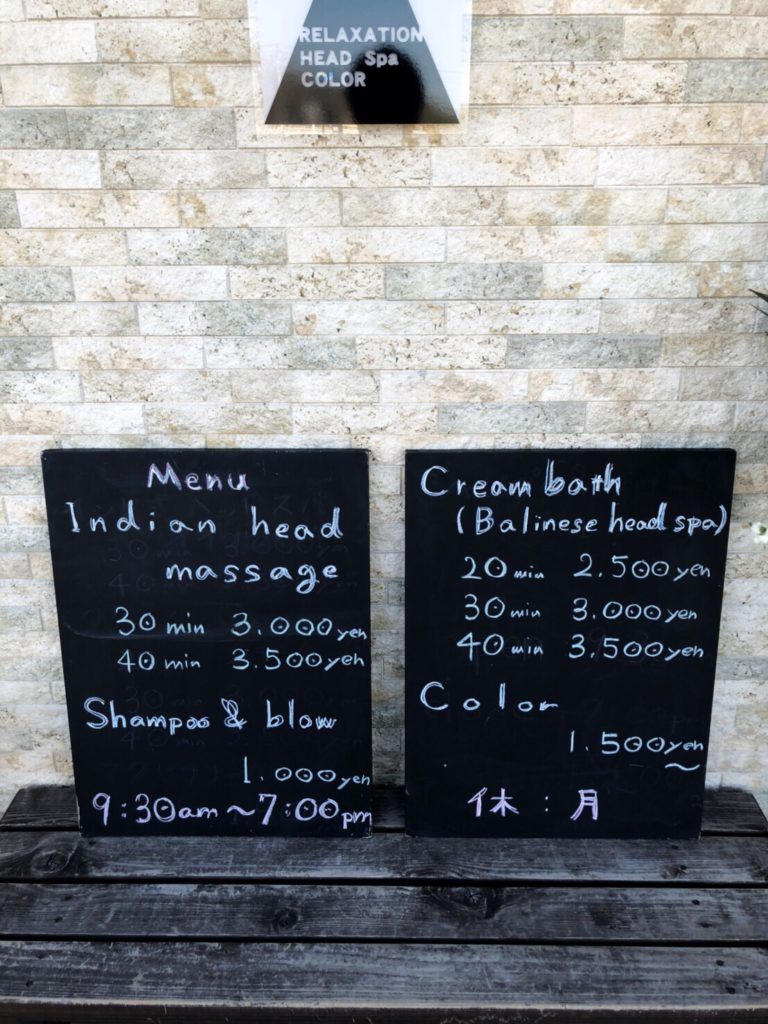 RELAXATION
HEAD Spa
COLOR
Menu
Indian head
massage
30 min 3.000 yen
40 min 3.500 yen
Shampoo & blow
1.000 yen
9:30am〜7:00pm
Cream bath
(Balinese head spa)
20 min 2.500 yen
30 min 3.000 yen
40 min 3.500 yen
Color
1.500 yen〜
休:月